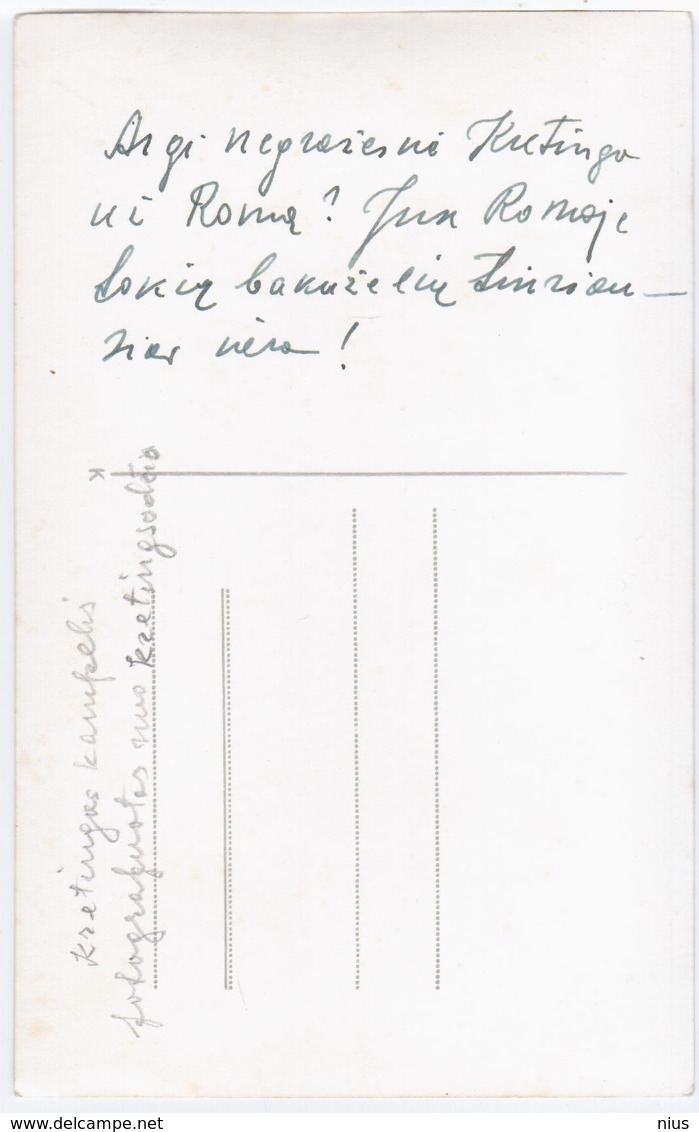 Argi negražesnė Kretinga
už Romą? Juk Romoje
tokių bakūželių
nėra!
K
Kretingos kampelis
fotografuotas nuo Kretingsodžio
www.delcampe.net
nius